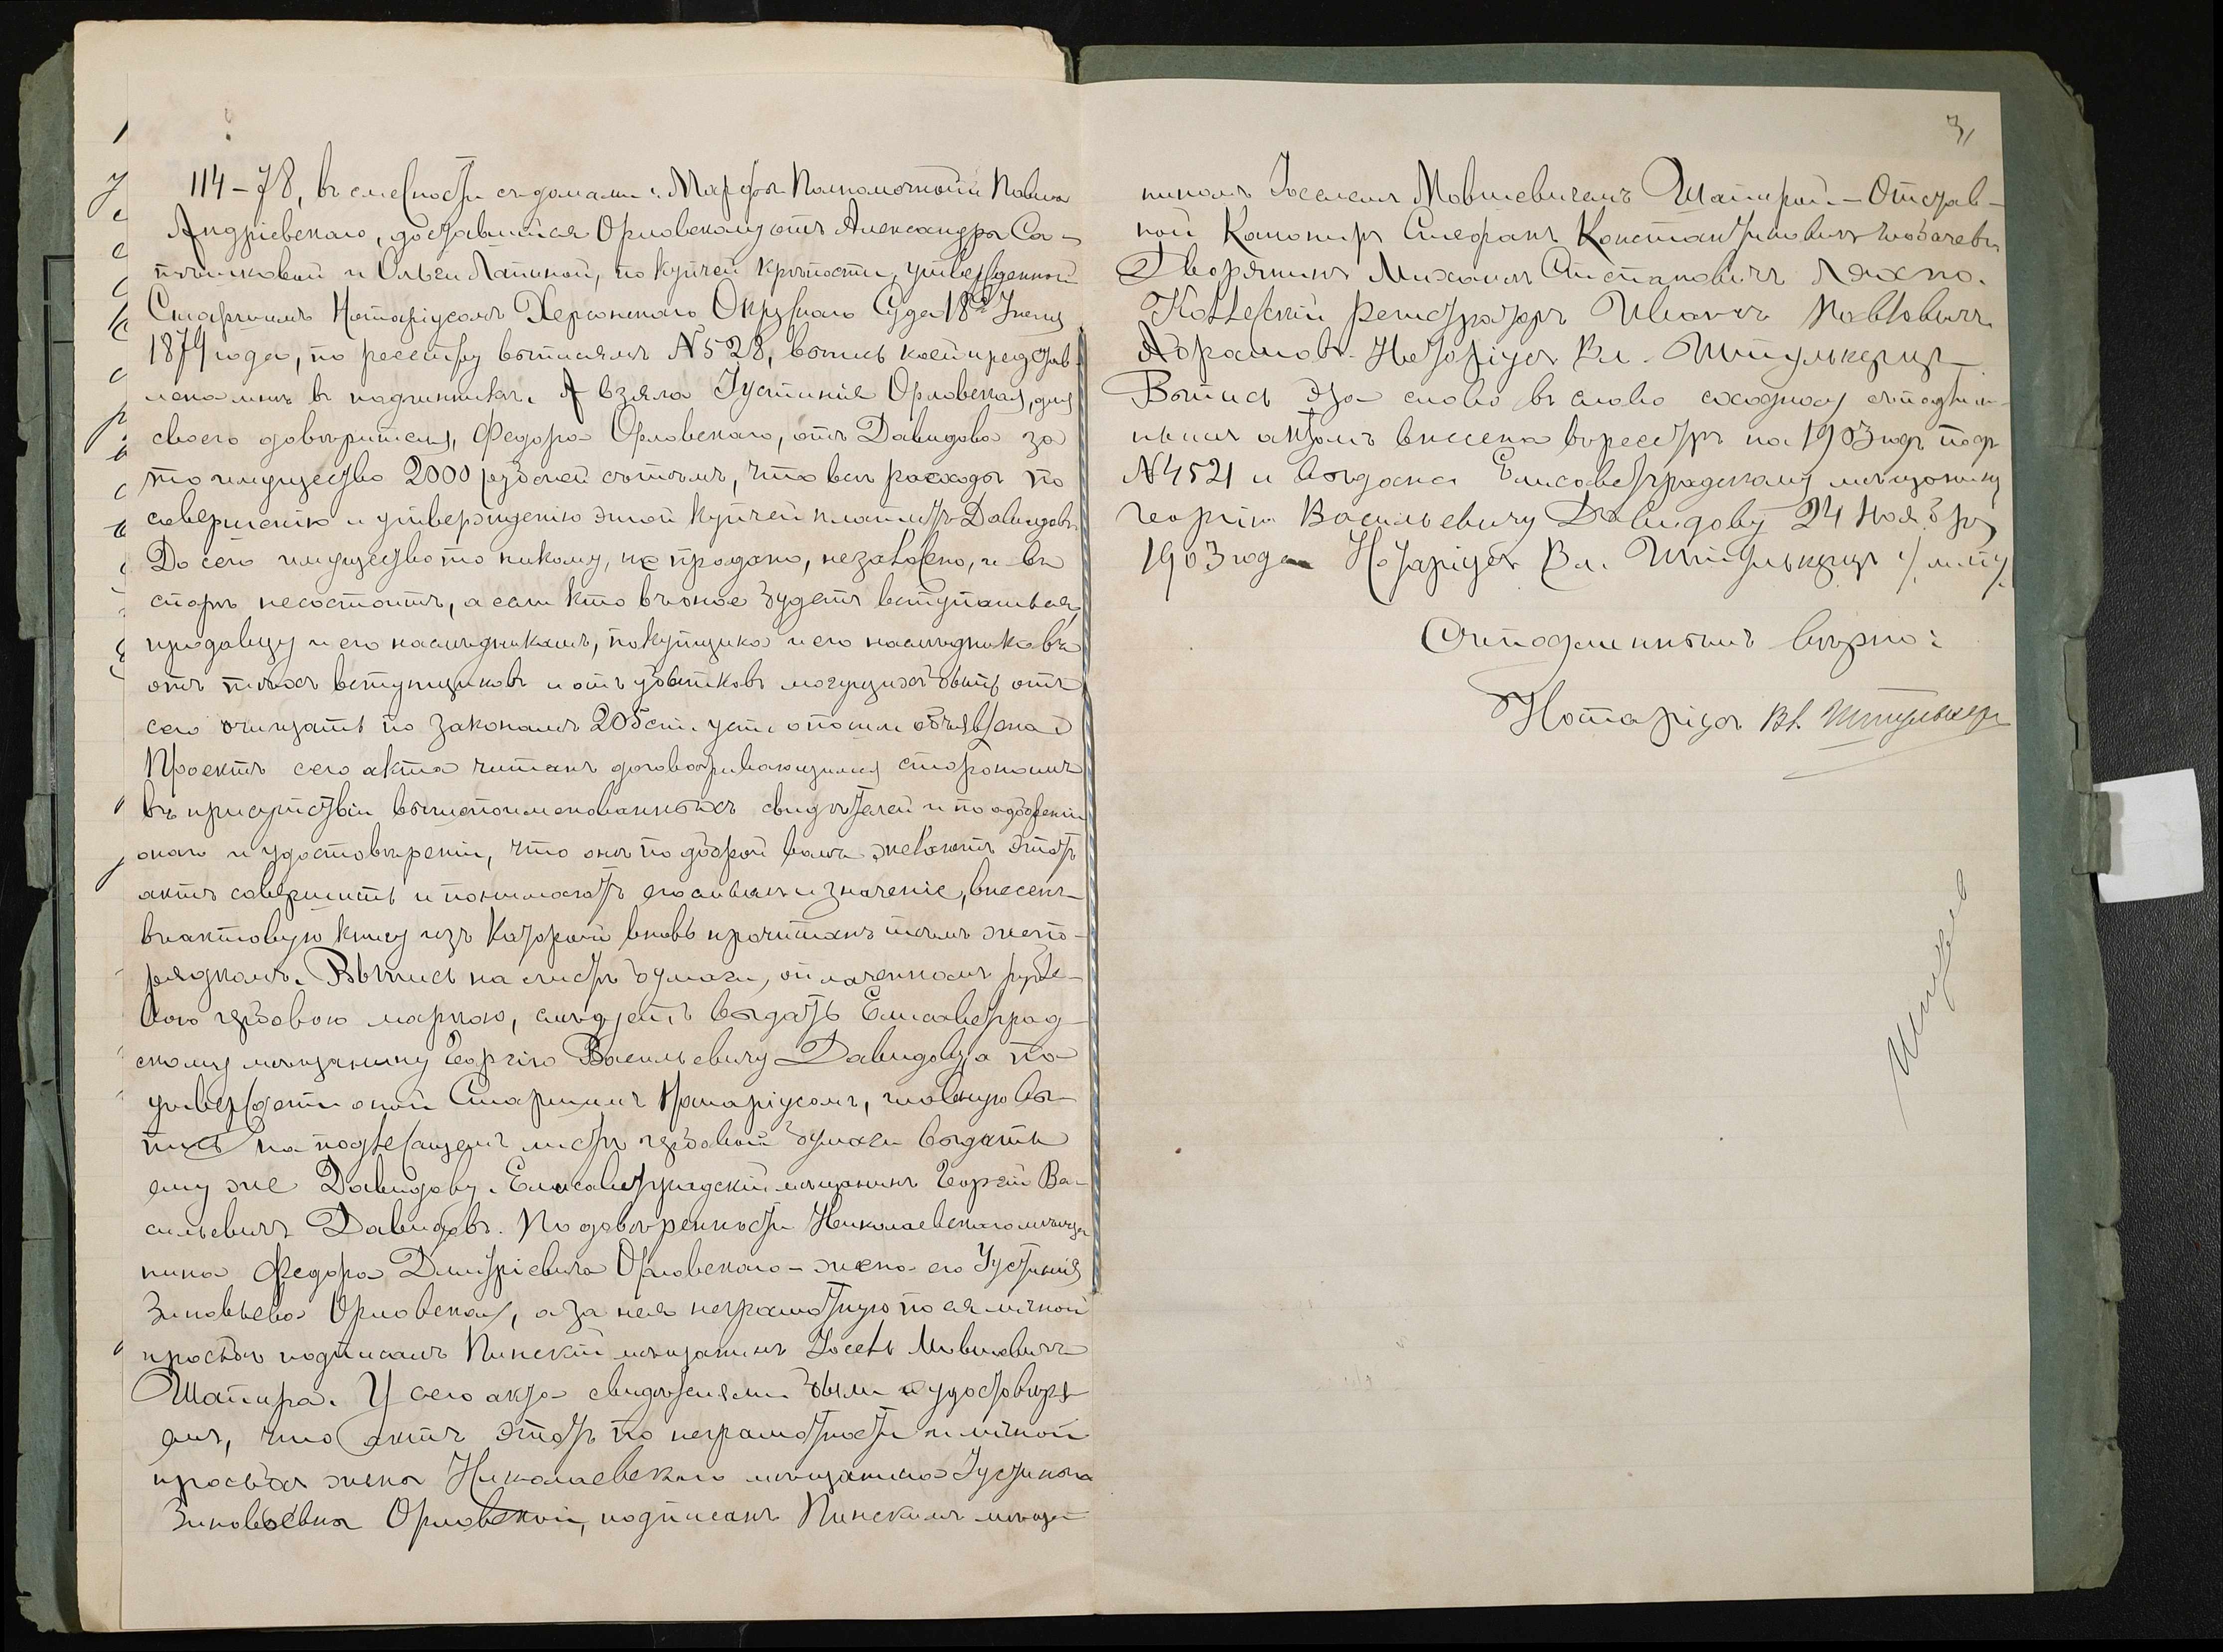 114-78, въ смежности съ домами: Марфы Полномочной и Павла
Андріевскаго, доставшійся Орловскому отъ Александры Са-
пожниковой и Ольги Лапиной, по купчей крѣпости, утвержденной
Старшимъ Нотаріусомъ Херсонскаго Окружнаго Суда 18го Іюня
1874 года, по реестру выписямъ № 528, выпись коей представ-
лена мнѣ въ подлинникѣ. А взяла Іустинія Орловская, для
своего довѣрителя, Федора Орловскаго, отъ Давидова за
то имущество 2000 рублей съ тѣмъ, что всѣ расходы по
совершенію и утвержденію этой купчей платитъ Давидовъ.
До сего имущество то никому, не продано, не заложено, и въ
спорѣ не состоитъ, а если кто въ оное будетъ вступаться,
продавцу и его наслѣдникамъ, покупщика и его наслѣдниковъ
отъ тѣхъ вступщиковъ и отъ убытковъ могущихъ быть отъ
сего очищать по законамъ 205 ст. уст. о пошл. объявлена.
Проектъ сего акта читанъ договаривающимся сторонамъ
въ присутствіи вышепоименованныхъ свидѣтелей и по одобреніи
онаго и удостовѣреніи, что они по доброй волѣ желаютъ этотъ
актъ совершить и понимаютъ его смыслъ и значеніе, внесенъ
въ актовую книгу изъ которой вновь прочитанъ тѣмъ же по-
рядкомъ. Выпись на листѣ бумаги, оплаченномъ рубле-
вою гербовою маркою, слѣдуетъ выдать Елисаветград-
скому мѣщанину Георгію Васильевичу Давидову, а по
утвержденіи оной Старшимъ Нотаріусомъ, главную вы-
пись на подлежащемъ листѣ гербовой бумаги выдать
ему же Давидову. Елисаветградскій мѣщанинъ Георгій Ва-
сильевичъ Давидовъ. По довѣренности Николаевскаго мѣща-
нина Федора Дмитріевича Орловскаго - жена его Іустинія
Зиновьева Орловская, а за нея неграмотную по ея личной
просьбѣ подписалъ Пинскій мѣщанинъ Іосель Мовшевичъ
Шапира. У сего акта свидѣтелями были и удостовѣря-
емъ, что актъ этотъ по неграмотности и личной
просьбѣ жены Николаевскаго мѣщанина Іустины
Зиновьевны Орловской, подписанъ Пинскимъ мѣща-
3
ниномъ Іоселемъ Мовшевичемъ Шапирой - Отстав-
ной Канониръ Стефанъ Константиновичъ
Дворянинъ Михаилъ Ляхно.
Коллежскій Регистраторъ Иванъ Павловичъ
Абрамовъ. Нотаріусъ Вл. Штпулькерцъ
Выпись эта слово въ слово сходная съ подлин-
нымъ актомъ внесена въ реестръ на 1903 годъ подъ
№ 4521 и выдана Елисаветградскому мѣщанину
Георгію Васильевичу Давидову 24 Ноября
1903 года Нотаріусъ Вл.
Съ подлиннымъ вѣрно:
Нотаріусъ Вл.